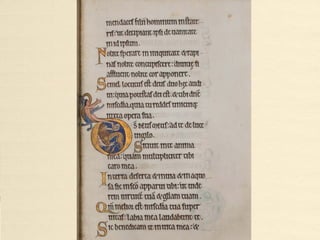 mendaces filii hominum in state
ris: ut decipiant ipsi de uanitate
in id ipsum.
Nolite sperare in iniquitate & rapi
nas nolite concupiscere: diuitie si
affluant nolite cor apponere.
Semel locutus est deus duo hec audi
ui: quia potestas dei est: & tibi dñe
mis̃dia, quia tu reddes unicuiq;
iuxta opera sua.
Ds̃ deus meus: ad te de luce
uigilo.
Sitiuit in te anima
mea: quam multipliciter tibi
caro mea.
In terra deserta & inuia & in aquo
sa: sic in sc̃o apparui tibi: ut uide
rem uirtutem tuã & gl̃iam tuam.
Qm̃ melior est mis̃dia tua super
uitas: labia mea laudabunt te.
Sic benedicam te in uita mea: &